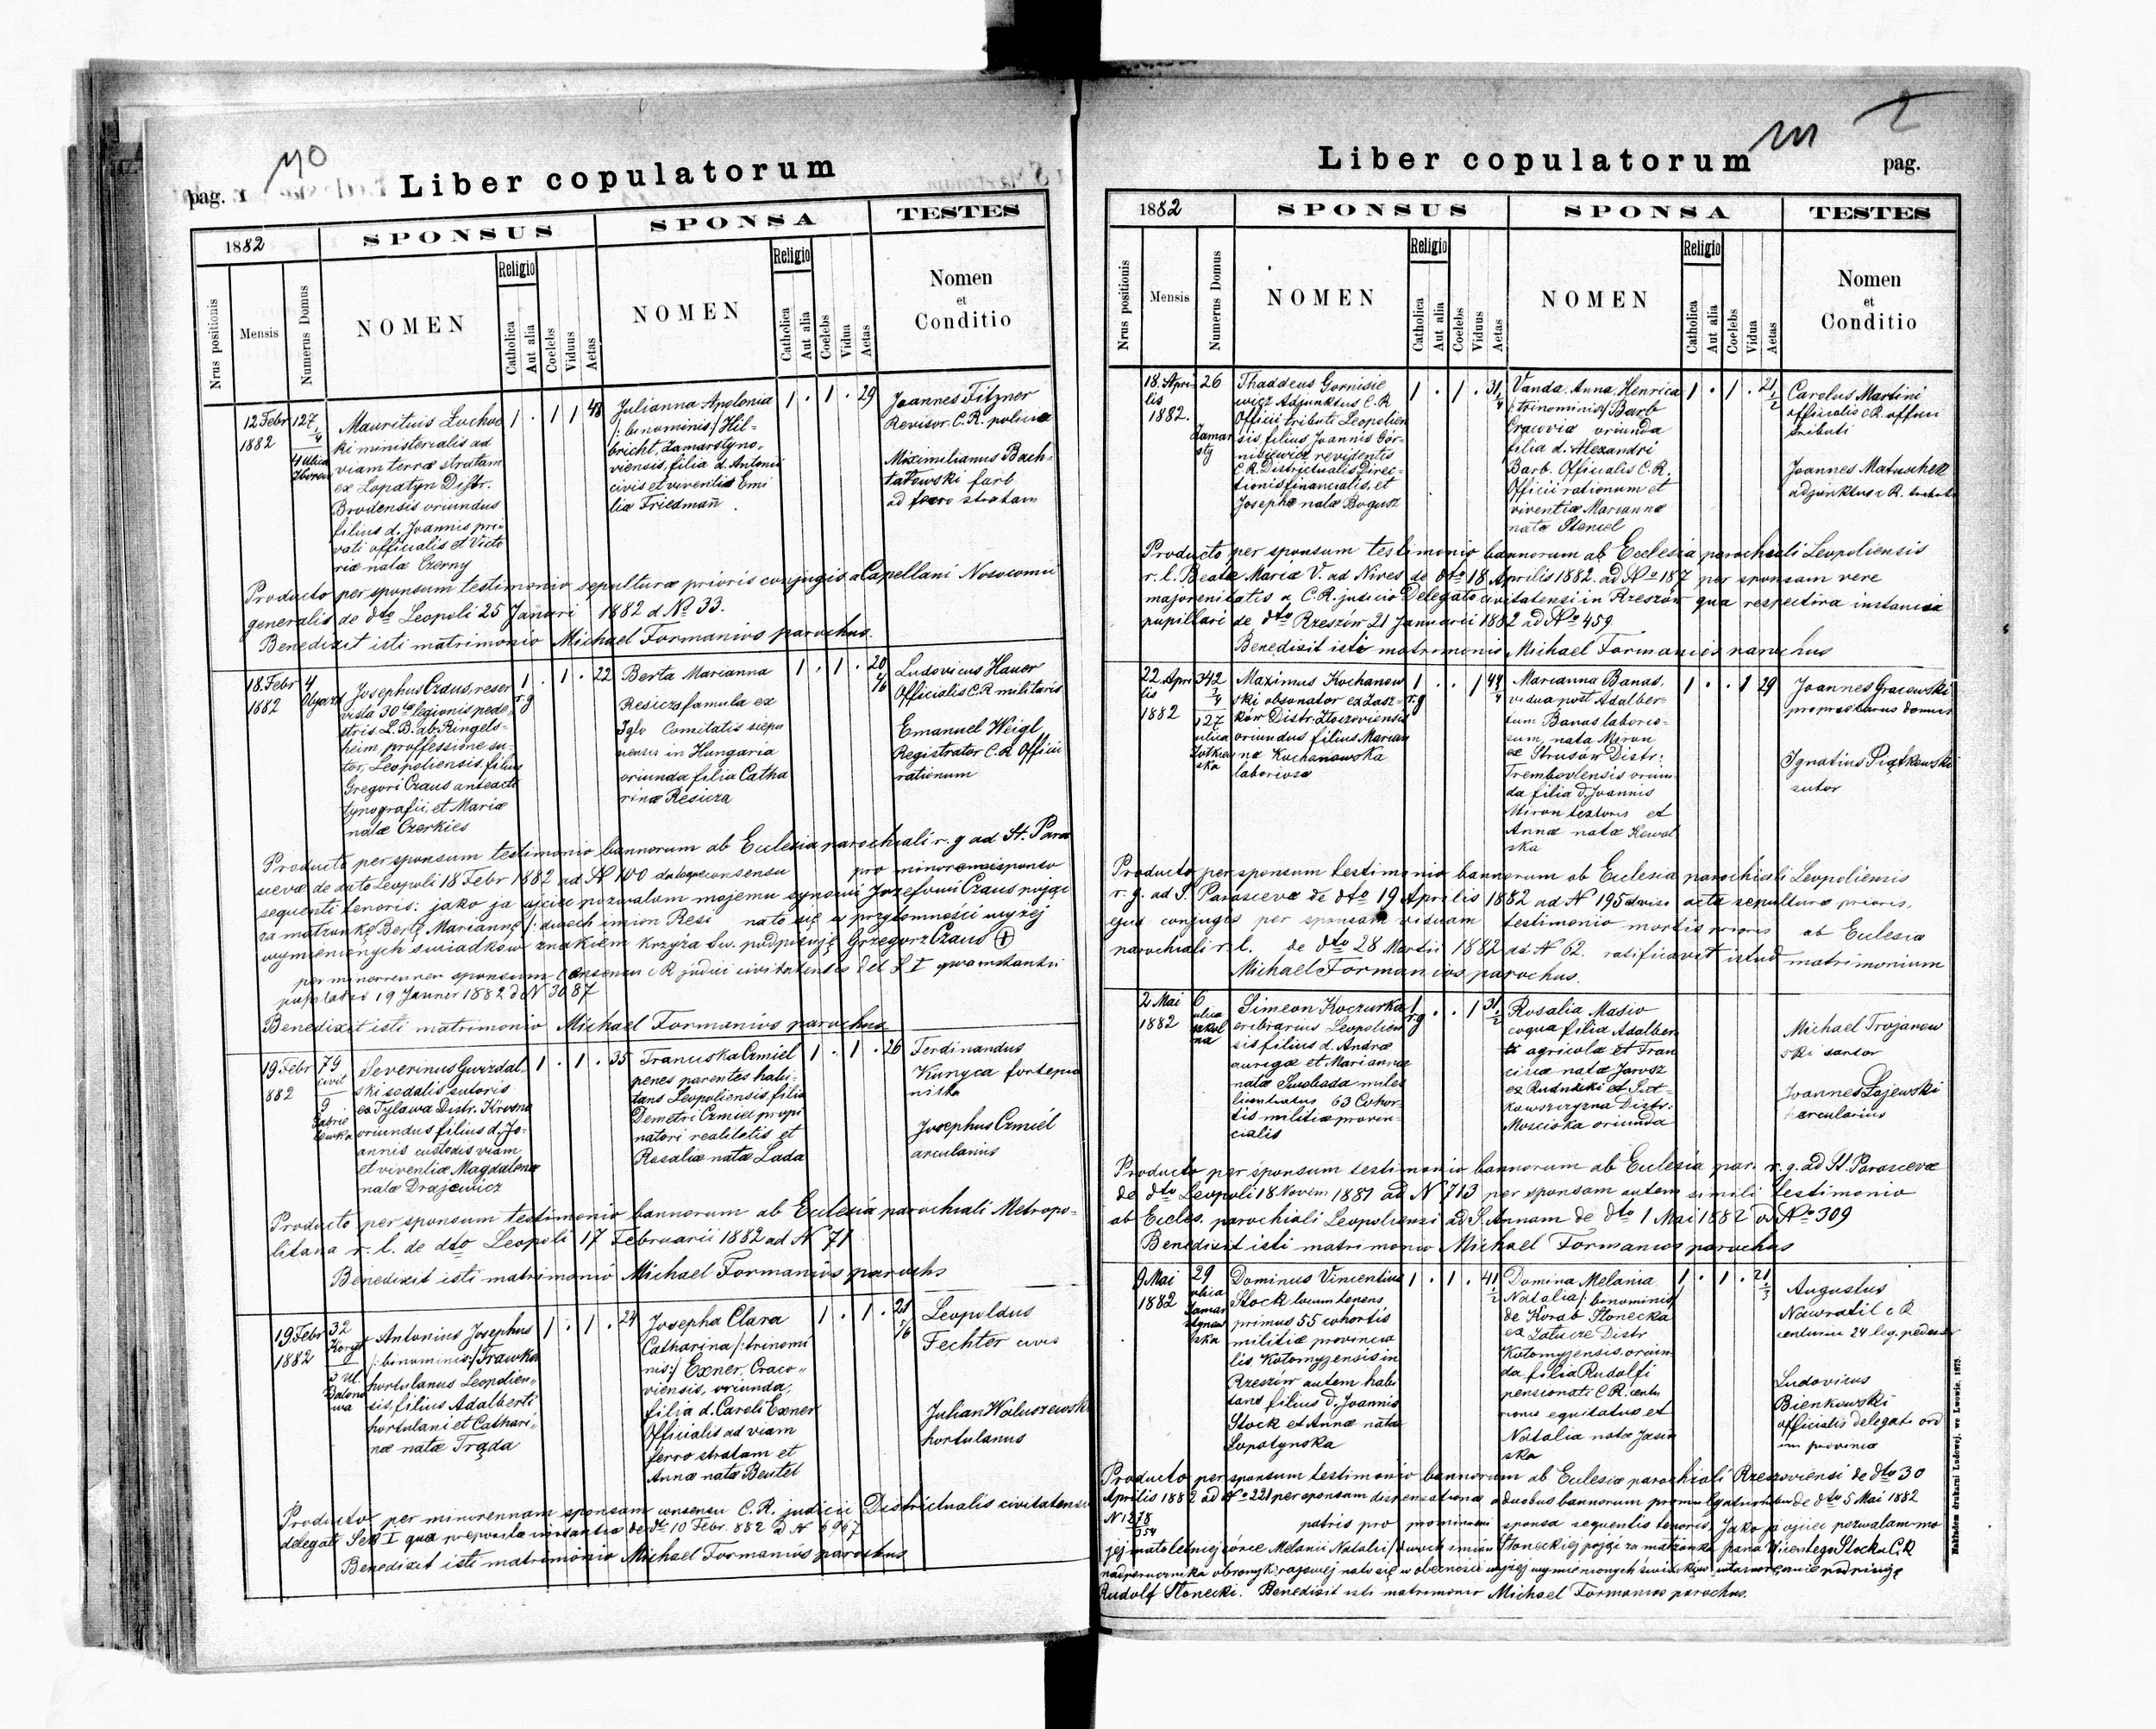 110
pag. 1
Liber copulatorum
1882
SPONSUS
SPONSA
TESTES
Nrus positionis
Mensis
Numerus Domus
NOMEN
Religio
Catholica
Aut alia
Coelebs
Viduus
Aetas
NOMEN
Religio
Catholica
Aut alia
Coelebs
Vidua
Aetas
Nomen
et
Conditio
12 Febr
1882
127
Mauritius Luchow
ki ministerialis ad
viam terræ stratam
ex Lopatyn Distr.
Brodensis oriundus
filius d. Joannis pri
vati officialis et Victo
riæ natæ Czerny
1 . 1 1 48
Julianna Apolonia
/: binominis:/ Hil-
bricht, Zamarstyno-
viensis, filia d. Antonii
civis et viventis Emi
liæ Friedman
1 . 1 . 29
Joannes Fitzner
Revisor C.R. policiæ
Maximilianus Bach-
ad ferro stratam
Producto per sponsum testimonio sepulturæ prioris conjugis a Capellani Nosocomii
generalis de dto Leopoli 25 Januari 1882 d. No 33.
Benedixit isti matrimonio Michael Formanios parochus.
18. Febr
1882
4
Josephus Czaus, reser
vista 30 legionis pede-
stris L.B. ab Ringels-
heim, proffessione su-
tor, Leopoliensis, filius
Gregori Czaus anteacti
typografii, et Mariæ
natæ Czerkies
1 . 1 . 22
r.g
Berta Marianna
Resicza famula ex
Iglo Comitatis siepu
siensis in Hungaria
oriunda filia Catha
rinæ Resicza
1 . 1 . 20
Ludovicus Hauer
Officialis C.R. militaris
Emanuel Weigl
Registrator C.R. Officii
rationum
Producto per sponsum testimonio bannorum ab Eclesia parochiali r. g ad St. Para
scevæ de dato Leopoli 18 Febr 1882 ad N 100 consensu pro minorenni sponso
sequenti tenoris: jako ja ojciec pozwalam mojemu synowi Jozefowi Czaus pojąć
za małżonkę Bertę Mariannę /: dwoch imion Resi na to się w przytomności wyżej
wymienionych swiadków znakiem krzyża św. podpisuję Grzegorz Czaus +
per minorennem sponsam Consensu C R judicii civitatensis del S I
19 Januer 1882 d N 3087
Benedixit isti matrimonio Michael Formanios parochus
19 Febr
882
79
civit
9
Severinus Gwizdal-
ski sodalis sutoris
ex Tylawa Distr. Krosno
oriundus filius d. Jo-
annis custodis viam
et viventis Magdalenæ
natæ Drajewicz
1 . 1 . 35
Franciska Czmiel
penes parentes habi-
tans Leopoliensis, filia
Demetri Czmiel propi
natori realitatis et
Rosaliæ natæ Lada
1 . 1 . 26
Ferdinandus
Kunyca fortepia
nista
Josephus Czmiel
arcularius
Producto per sponsum testimonio bannorum ab Eclesiâ parochiali Metropo-
litana r. l. de dto Leopoli 17 Februarii 1882 ad N 71
Benedixit isti matrimonio Michael Formanios parochs
19. Febr
1882
32
Antonius Josephus
/: binominis:/ Trawka
hortulanus Leopolien-
sis, filius Adalberti
hortulani et Cathari-
næ natæ Trąda
1 . 1 . 24
Josepha Clara
Catharina /: trinomi
nis:/ Exner, Craco-
viensis, oriunda,
filia d. Caroli Exner
Officialis ad viam
ferro stratam et
Annæ natæ Beutel
1 . 1 .
Leopoldus
Fechter civis
Julian Waluszewski
hortulanus
Producto per minorennam sponsam consensu C.R. judicii Districtualis civitatensi
delegati Sect I qua preposita instantia de dto 10 Febr. 882 d N 6967
Benedixit isti matrimonio Michael Formanios parochus
111
2
Liber copulatorum
pag.
1882
SPONSUS
SPONSA
TESTES
Nrus positionis
Mensis
Numerus Domus
NOMEN
Religio
Catholica
Aut alia
Coelebs
Viduus
Aetas
NOMEN
Religio
Catholica
Aut alia
Coelebs
Vidua
Aetas
Nomen
et
Conditio
18. Apri
lis
1882.
26
Zamar
sty
Thaddeus Gornisie
wicz Adjunktus C.R
Officii tributi Leopolien
sis, filius Joannis Gór-
nisiewicz revidentis
C.R. Districtualis Direc-
tionis financialis, et
Josephæ natæ Bogusz
1 . 1 . 31
Vanda Anna Henrica
/: trinominis/ Barb
Cracovia oriunda
filia d. Alexandri
Barb. Officialis C.R.
Officii rationum et
viventis Mariannæ
natæ Stencel
1 . 1 . 21 1/2
Carolus Martini
officialis c R. officii
tributi
Joannes Matuschek
adjunktus c R. tributi
Producto per sponsum testimonio bannorum ab Ecclesia parochiali Leopoliensis
r. l. Beatæ Mariæ V. ad Nives de dto 18 Aprilis 1882. ad No 187 per sponsam vere
majorenitatis a C.R. judicio Delegato civitatensi in Rzeszów qua respectiva instancia
pupillari de dto Rzeszów 21 Januarii 1882 ad No 459.
Benedixit isti matrimonio Michael Formanios parochus
22. Apri
lis
1882
342
127
ulica
Maximus Kochanow
ski obsonator ex Sasz-
ków Distr. Złoczoviensis
oriundus filius Marian
na Kochanowska
laboriosa
1 . . 1 44
r.g
Marianna Banas,
vidua post Adalber-
tum Banas laborio-
sum, nata Miron
ex Strusów Distr:
Trembovlensis oriun
da filia d. Joannis
Miron textoris et
Annæ natæ Kowal
ska
1 . . 1 29
Joannes Gracowski
proprietarius domus
Ignatius Piątkowski
sutor
Producto per sponsum testimonio bannorum ab Eclesia parochiali Leopoliensis
r. g. ad S. Parasceva de dto 19 Aprilis 1882 ad N 195 acta sepulturæ prioris,
ejus conjugis per sponsam viduam testimonio mortis prioris ab Eclesia
parochiali r. l. de dto 28 Martii 1882 ad N 62. ratificavit istud matrimonium
Michael Formanios parochus.
2 Mai
1882
6
ulica
szkol
na
Simeon Koczurka
cribrarius Leopolien
sis filius d. Andræ
aurigæ et Mariannæ
natæ Swoboda miles
63 Cohor-
tis militiæ provin-
cialis
1 . . 1 31 1/2
r.g
Rosalia Masio
coqua filia Adalber
ti agricolæ et Fran
ciscæ natæ Jarosz
ex Rudniki et Sut
kowszczyzna Distr:
Mosciska oriunda
Michael Trojanow
ski sartor
Joannes Łojewski
arcularius
Producto per sponsum testimonio bannorum ab Eclesia par. r. g. ad St. Parascevæ
de dto Leopoli 18 Novem 1881 ad N 713 per sponsam autem simili testimonio
ab Eccles. parochiali Leopoliensi ad S. Annam de dto 1 Mai 1882 d No 309
Benedixit isti matrimonio Michael Formanios parochus
9 Mai
1882
29
ulica
Zamar
stynow
ska
Dominus Vincentius
Stock locumtenens
primus 55 cohortis
militiæ provincia
lis Kołomyjensis in
Rzeszów autem habi
tans filius d. Joannis
Stock et Annæ natæ
Lopatynska
1 . 1 . 41 1/2
Domina Melania
Natalia /: binominis/
de Korab Słonecka
ex Zatucze Distr
Kołomyjensis oriun
da filia Rudolfi
pensionati C.R. centu
rionis equitatus et
Natalia nata Jasin
ska
1 . 1 . 21
Augustus
Nawratil c R
centurio 24 leg. pedestr
Ludovicus
Bienkowski
officialis delegati ord
Producto per sponsum testimonio bannorum ab Eclesia parochiali Rzeszoviensi de dto 30
Aprilis 1882 ad No 221 per sponsam dispensationæ a duobus bannorum promulgationibus de dto 5 Mai 1882
N 1278
354
patris pro sponsa sequentis tenoris. Jako ja ojciec pozwalam mo
jej małoletniej córce Melanii Natalii /: dwoch imion Słoneckiej pojąć za małżonka pana Vicentego Stocka C.R
nadporucznika obrony krajowej na to się w obecności wyżej wymienionych świadków własnoręcznie podpisuję
Rudolf Słonecki. Benedixit isti matrimonio Michael Formanios parochus.
Nakładem drukarni Ludowej, we Lwowie. 1875.